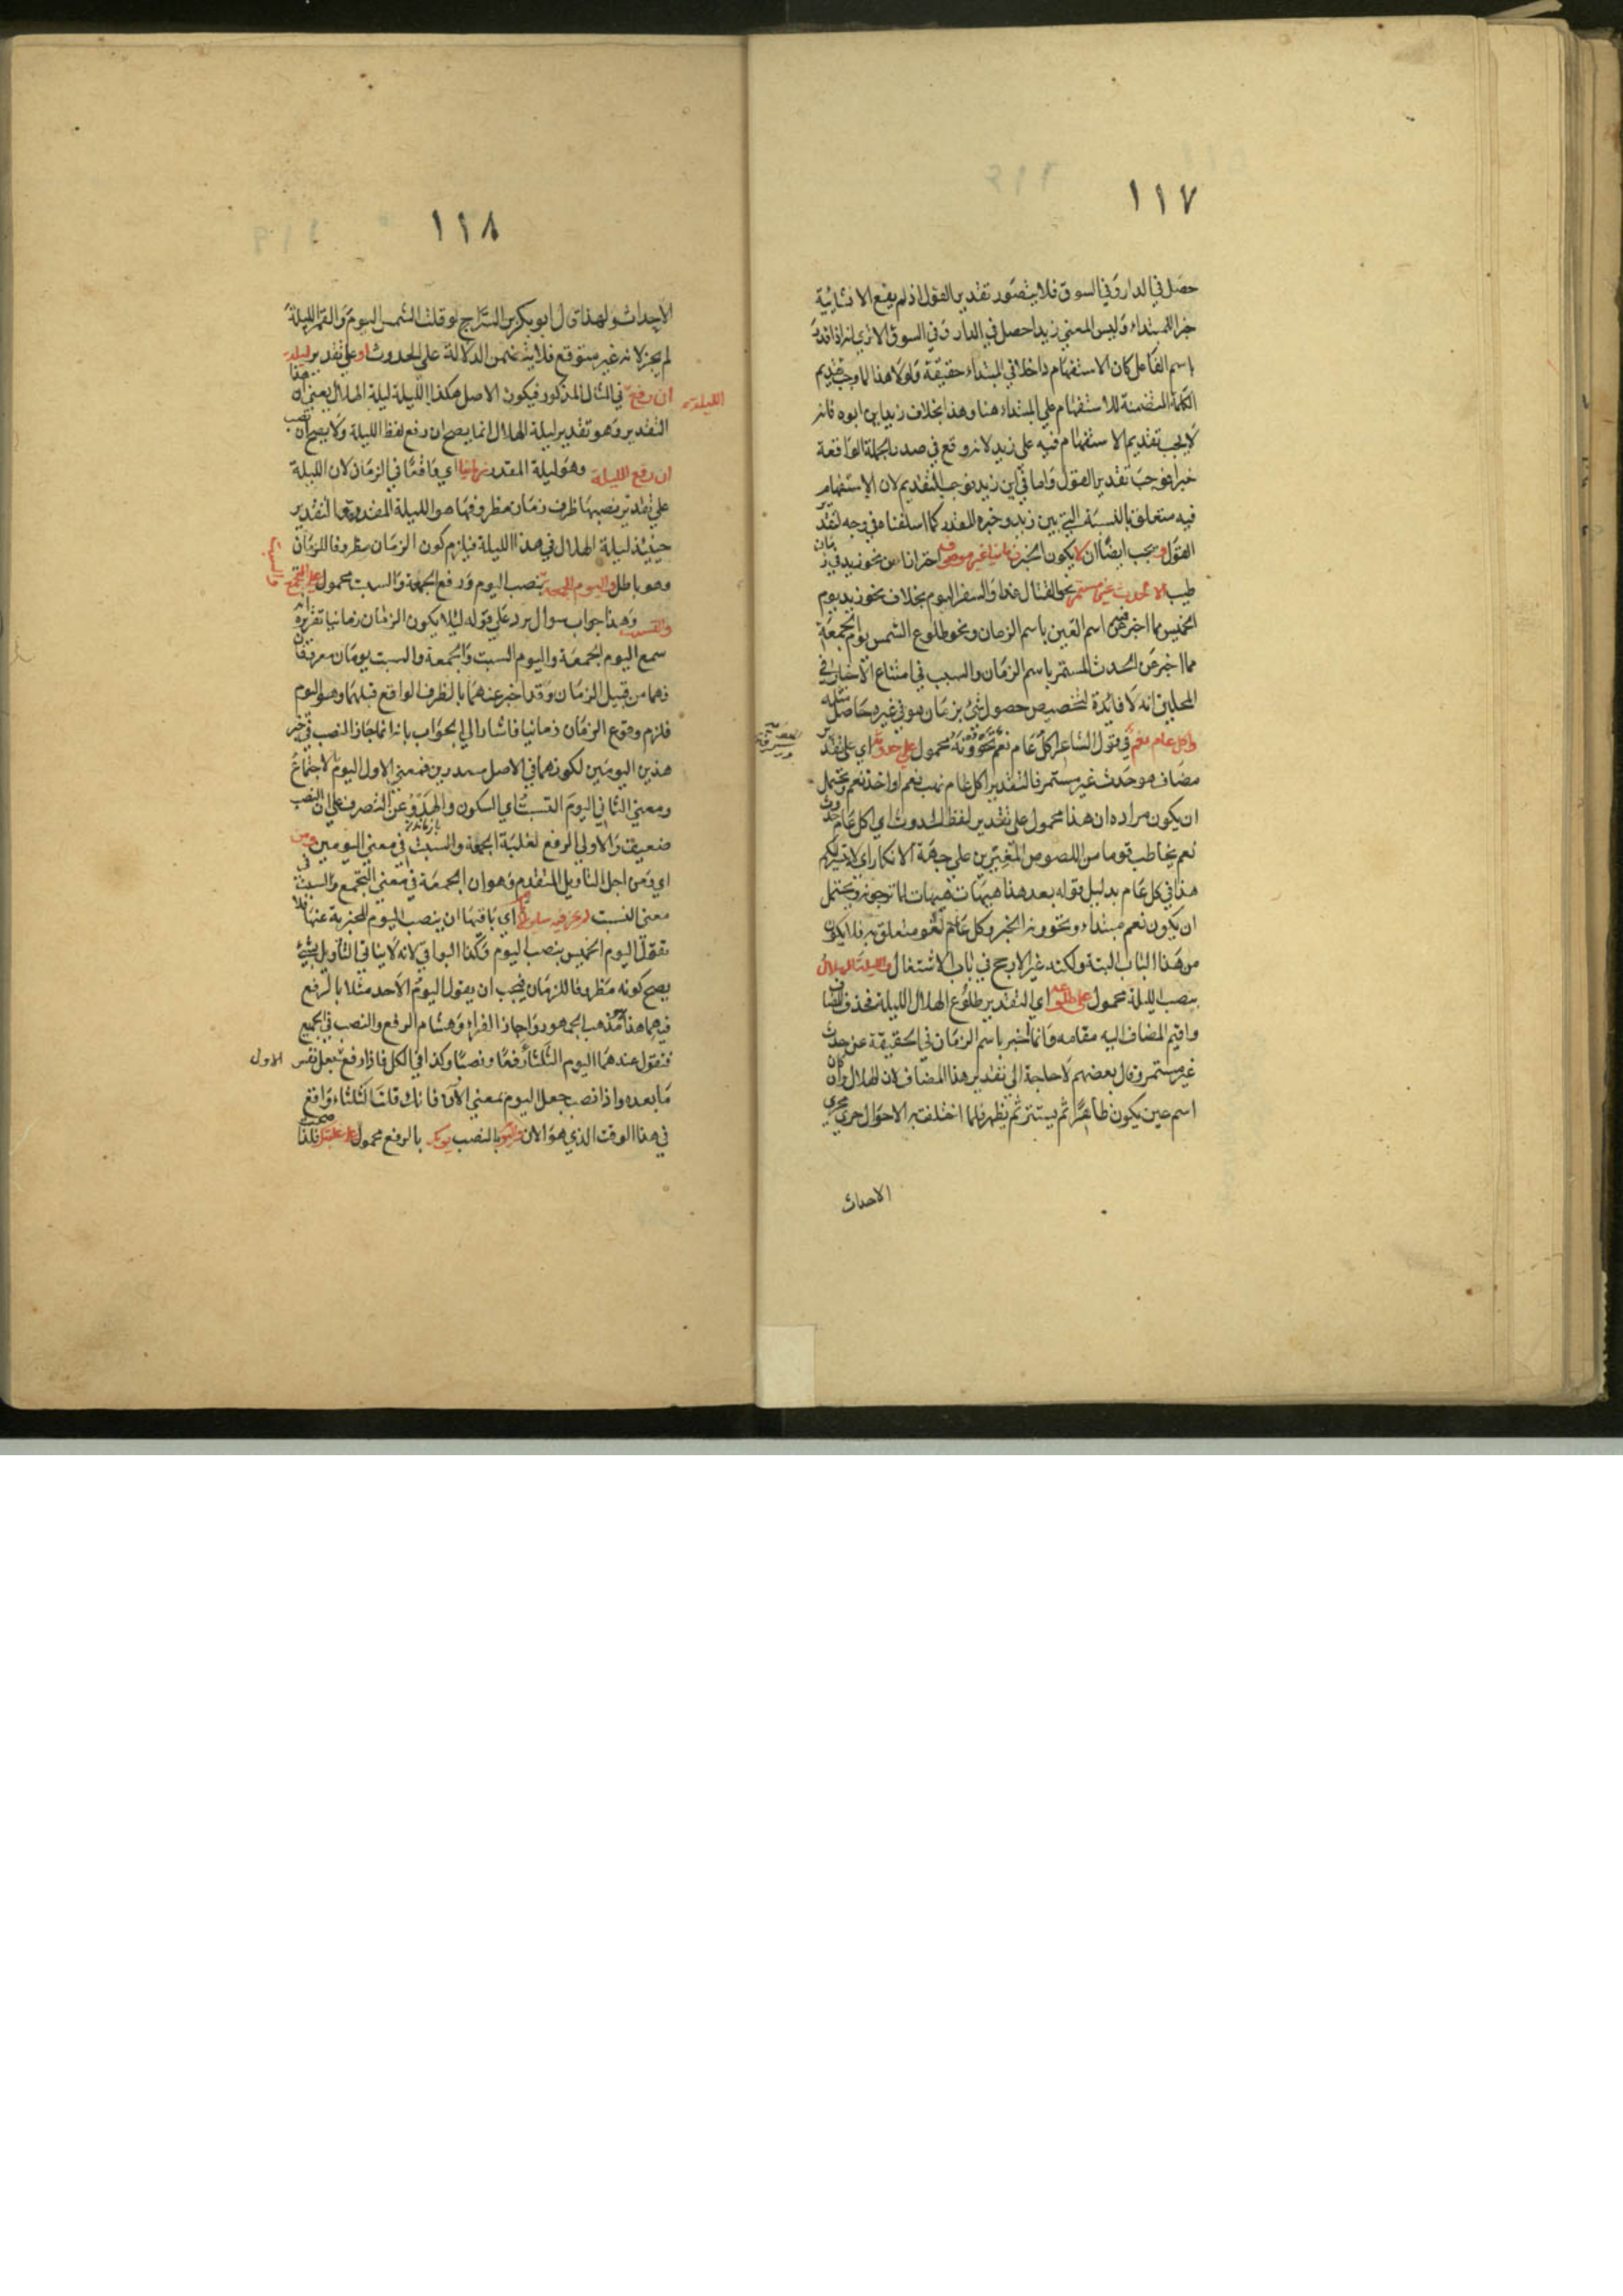 ١١٧
حصل في الدار وفي السوق فلا يتصور تقدير القول اذ لم يقع الانشائية
خبرا للمبتداء وليس المعني زيدا حصل في الدار وفي السوق الا تري انه اذا قدر
باسم الفاعل كان الاستفهام داخلا في المبتداء حقيقة ولولا هذا لما وجب تقديم
الكلمة المتضمنة للاستفهام علي المبتداء هنا وهذا بخلاف زيد اين ابوه فانه
لا يجب تقديم الاستفهام فيه علي زيد لانه وقع في صدر الجملة الواقعة
خبرا فوجب تقدير القول واما في اين زيد فوجب التقديم لان الاستفهام
فيه متعلق بالنسبة التي بين زيد وخبره المقدر كما اسلفنا في وجه تقدير
القول ويجب ايضا ان لا يكون الخبر احترازا من نحو زيد في زمان
طيب نحو القتال غدا والسفر اليوم بخلاف نحو زيد يوم
الخميس مما اخبر فيه عن اسم العين باسم الزمان ونحو طلوع الشمس يوم الجمعة
مما اخبر عن الحدث المستمر باسم الزمان والسبب في امتناع الاخبار في
المحلين انه لا فائدة لتخصيص حصول شئ بزمان هو في غيره حاصل مثله
واكل عام نعم في قول الشاعر اكل عام نعم تحوونه محمول علي حدوث اي علي تقدير
مضاف هو حدث غير مستمر فالتقدير اكل عام نهب نعم او اخذ نعم ويحتمل
ان يكون مراده ان هذا محمول علي تقدير لفظ الحدوث اي اكل عام حدوث
نعم يخاطب قوما من اللصوص المغيرين علي جهة الانكار اي لا يتيسر لكم
هذا في كل عام بدليل قوله بعد هذا هيهات هيهات لما ترجونه ويحتمل
ان يكون نعم مبتداء وتحوونه الخبر وكل عام لغو متعلق به فلا يكون
من هذا الباب البتة ولكنه غير الارجح في باب الاشتغال والليلة الهلال
بنصب الليلة محمول علي طلوعه اي التقدير طلوع الهلال الليلة فحذف المضاف
واقيم المضاف اليه مقامه وانما اخبر باسم الزمان في الحقيقة عن حدث
غير مستمر وقال بعضهم لا حاجة الي تقدير هذا المضاف لان الهلال وان كان
اسم عين يكون ظاهرا ثم يستتر ثم يظهر فلما اختلفت به الاحوال جري مجري
الاحداث
١١٨
الاحداث ولهذا قال ابو بكر بن السراج لو قلت الشمس اليوم والقمر الليلة
لم يجز لانه غير متوقع فلا يتضمن الدلالة علي الحدوث او علي تقدير ليلة
الليلة
ان رفع في المثال المذكور فيكون الاصل هكذا الليلة ليلة الهلال يعني ان هذا
التقدير وهو تقدير ليلة الهلال انما يصح ان رفع لفظ الليلة ولا يصح ان نصب
ان رفع الليلة وهو ليلة المقدر زمانيا اي واقعا في الزمان لان الليلة
علي تقدير نصبها ظرف زمان مظروفها هو الليلة المقدرة والتقدير
حينئذ ليلة الهلال في هذا الليلة فيلزم كون الزمان مظروفا للزمان
وهو باطل واليوم الجمعة بنصب اليوم ورفع الجمعة والسبت محمول علي التجمع
والتسبت وهذا جواب سوال يرد علي قوله لئلا يكون الزمان زمانيا تقريره انه
سمع اليوم الجمعة واليوم السبت والجمعة والسبت يومان معروفان
فهما من قبيل الزمان وقد اخبر عنهما بالظرف الواقع قبلهما وهو اليوم
فلزم وقوع الزمان زمانيا فاشار الي الجواب بانه انما جاز النصب في خبر
هذين اليومين لكونهما في الاصل مصدرين فمعني الاول اليوم الاجتماع
ومعني الثاني اليوم التسبت اي السكون والهدو عن التصرف علي ان النصب
ضعيف والاولي الرفع لغلبة الجمعة والسبت في معني اليومين ومن
اي ومن اجل التاويل المتقدم وهو ان الجمعة في معني التجمع والسبت في
معني التسبت اي باقيها ان ينصب اليوم المخبر به عنها فلا
تقول اليوم الخميس بنصب اليوم وكذا البواقي لانه لا يتاتي التاويل بشئ
يصح كونه مظروفا للزمان فيجب ان يقول اليوم الاحد مثلا بالرفع
فيهما هذا مذهب الجمهور واجاز الفراء وهشام الرفع والنصب في الجميع
فتقول عندهما اليوم الثلثا رفعا ونصبا وكذا في الكل فاذا رفع جعل نفس الاول
ما بعده واذا نصب جعل اليوم بمعني الآن فانك قلت الثلثاء واقع
في هذا الوقت الذي هو الان بالنصب بالرفع محمول